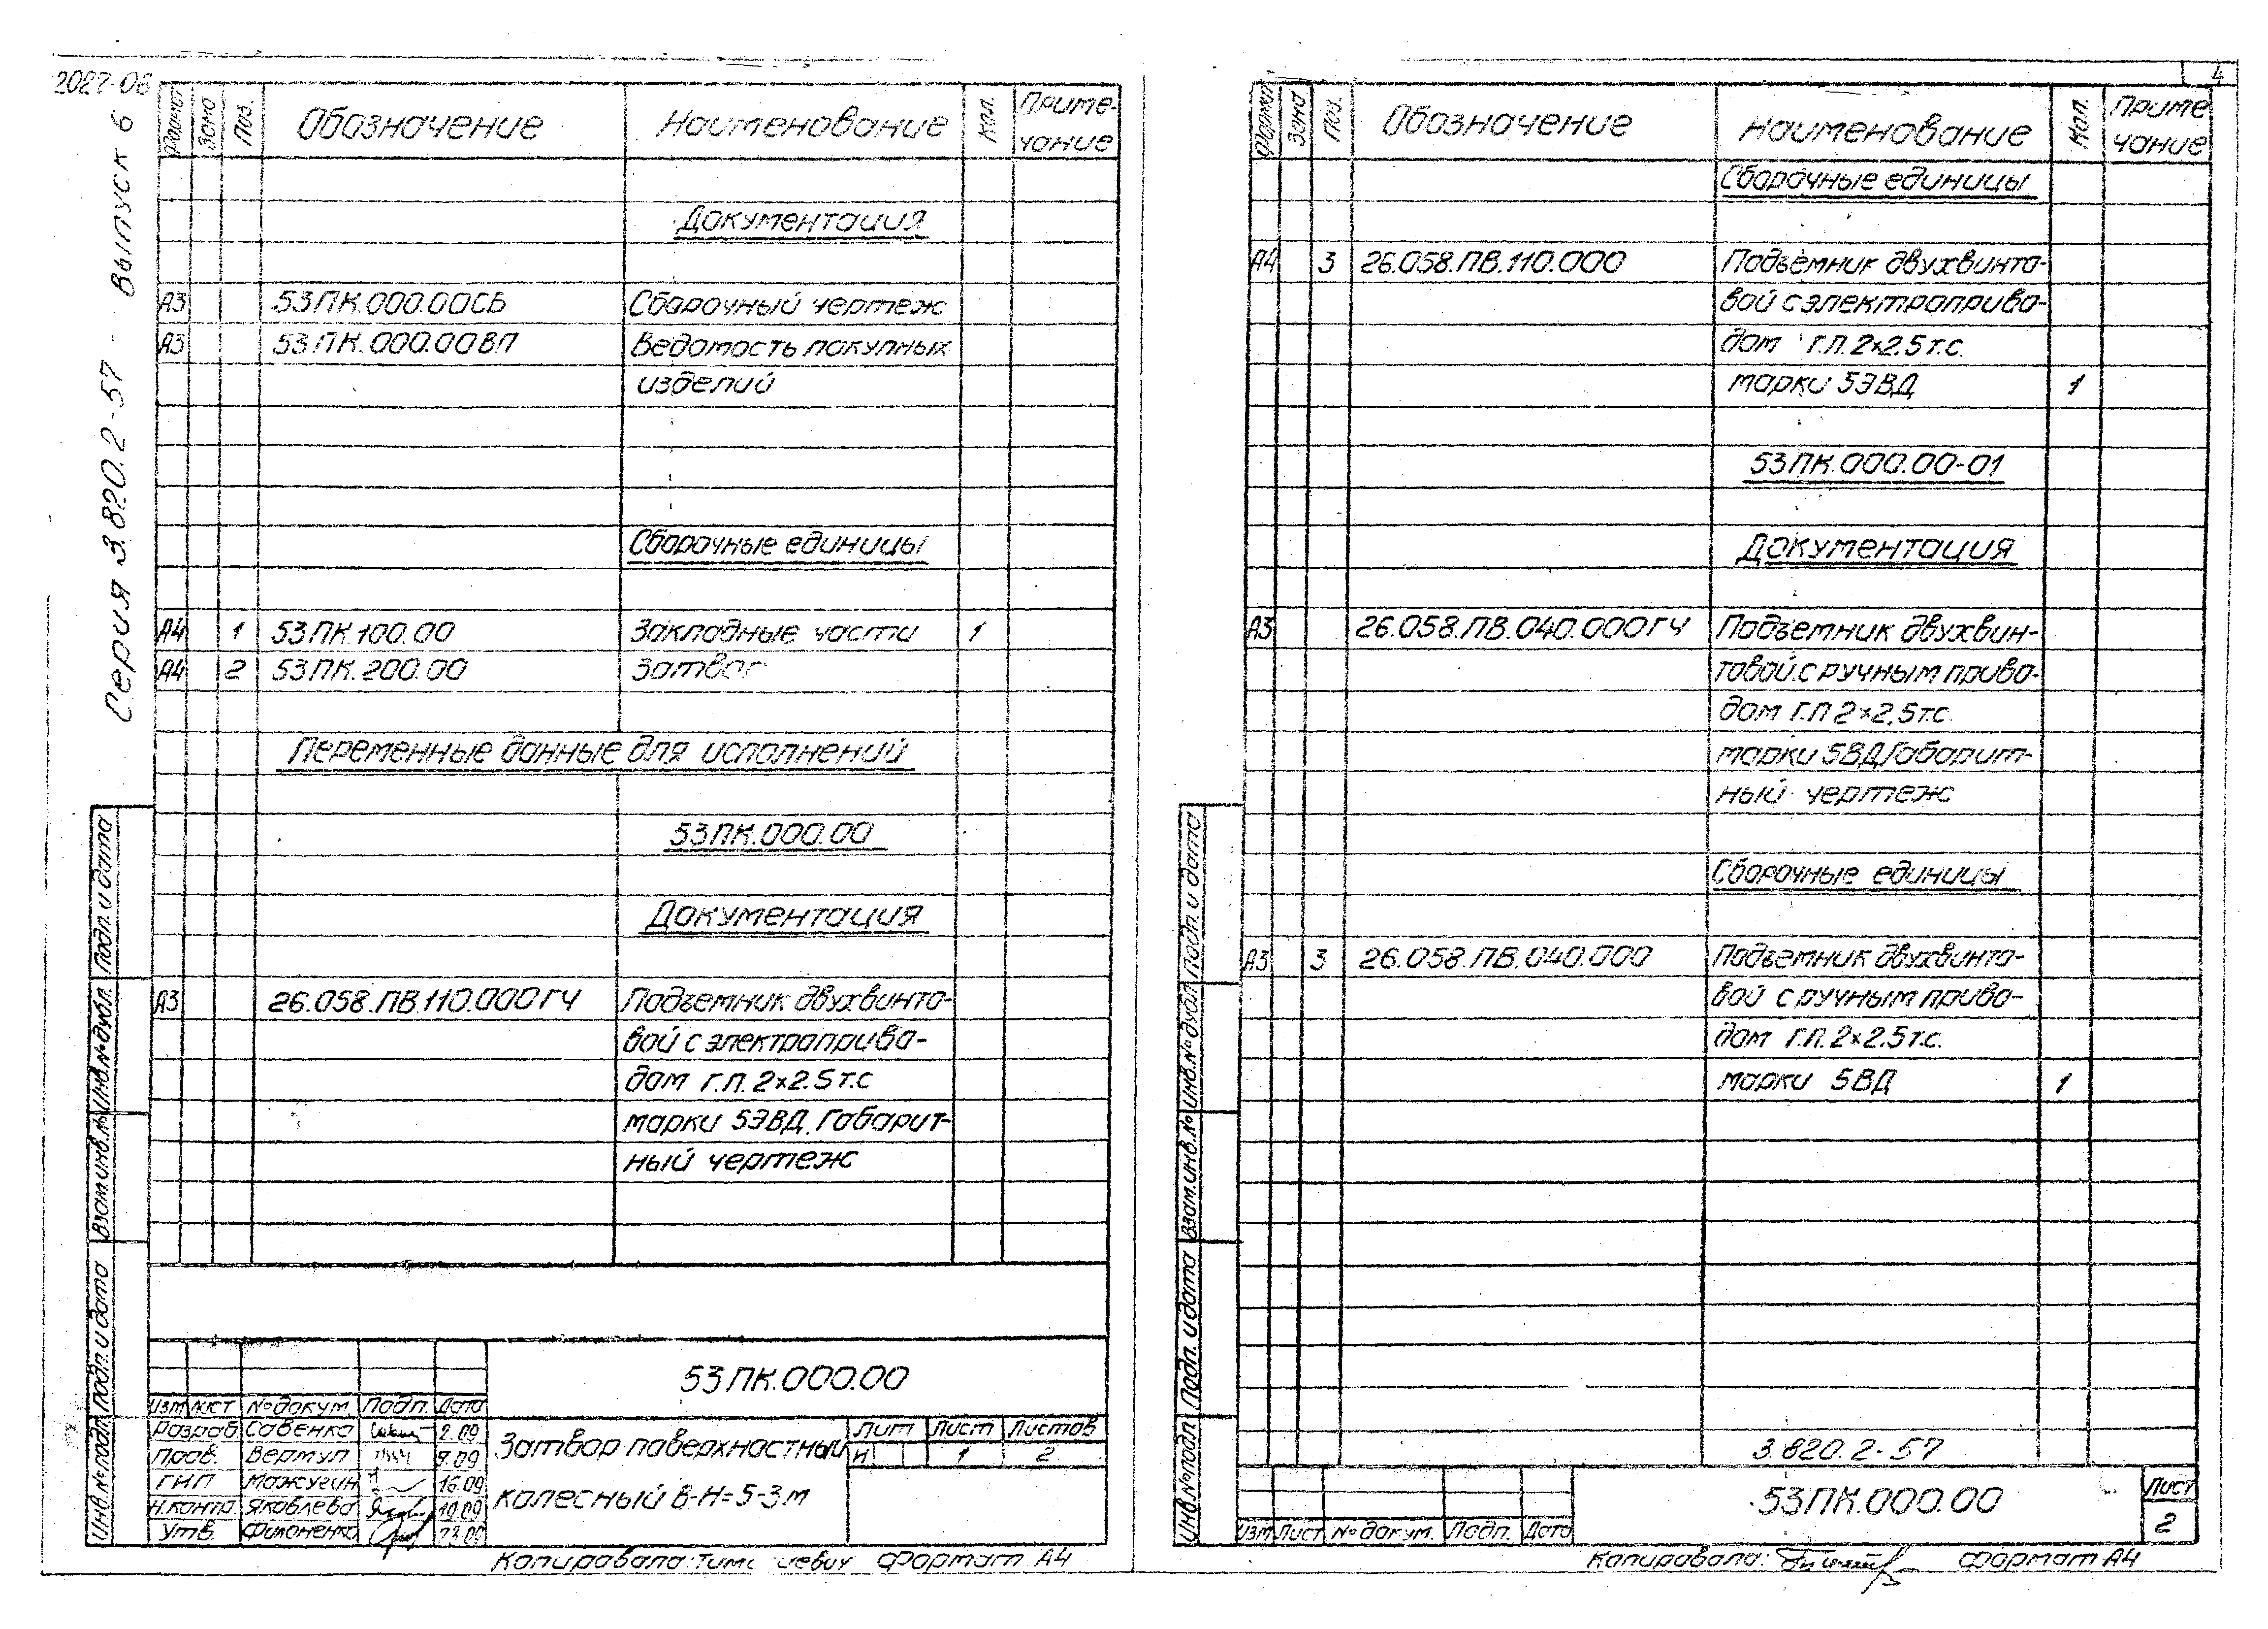 2027-06
Серия 3.820.2-57 Выпуск 6
Формат Зона Поз. Обозначение Наименование Кол. Приме-
чание
Документация
А3 53ПК.000.00СБ Сборочный чертеж
А3 53ПК.000.00ВП Ведомость покупных
изделий
Сборочные единицы
А4 1 53ПК.100.00 Закладные части 1
А4 2 53ПК.200.00 Затвор
Переменные данные для исполнений
53ПК.000.00
Документация
А3 26.058.ПВ.110.000ГЧ Подъемник двухвинто-
вой с электроприво-
дом Г.П. 2×2.5т.с
марки 5ЭВД. Габарит-
ный чертеж
Инв.№подл. Подп. и дата Взам инв.№ Инв.№дубл. Подп. и дата
53ПК.000.00
Изм Лист №докум. Подп. Дата
Разраб. Савенко 2.09
Пров. Вермул 9.09
ГИП Мажугин 16.09
Н.контр. Яковлева 19.09
Утв. Филоненко 23.09
Затвор поверхностный
колесный В-Н=5-3м
Лит Лист Листов
И 1 2
Копировала: Формат А4
4
Формат Зона Поз. Обозначение Наименование Кол. Приме
чание
Сборочные единицы
А4 3 26.058.ПВ.110.000 Подъемник двухвинто-
вой с электроприво-
дом Г.П. 2×2.5т.с.
марки 5ЭВД 1
53ПК.000.00-01
Документация
А3 26.058.ПВ.040.000ГЧ Подъемник двухвин-
товой с ручным приво-
дом Г.П 2×2,5т.с.
марки 5ВД.Габарит-
ный чертеж
Сборочные единицы
А3 3 26.058.ПВ.040.000 Подъемник двухвинто-
вой с ручным приво-
дом Г.П. 2×2.5т.с.
марки 5ВД 1
Инв.№подл. Подп. и дата Взам.инв.№ Инв.№дубл. Подп. и дата
3.820.2-57
53ПК.000.00
Лист
2
Изм Лист №докум. Подп. Дата
Копировала: Формат А4